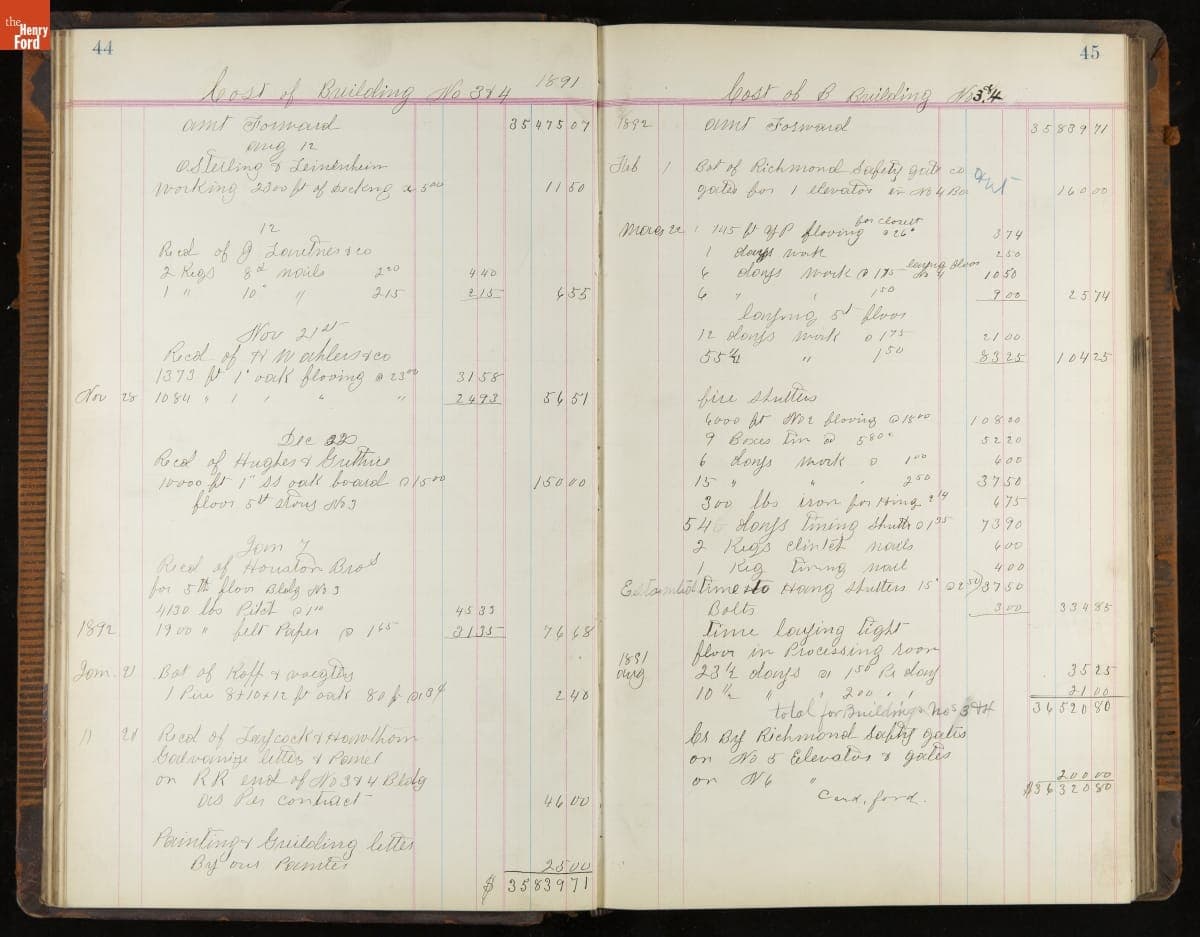 the Henry Ford
44
Cost of Building No 3 & 4 1891
amt Forward 35475 07
Aug 12
Osterling &
Working 2300 ft of Decking @ 5 00 11 50
12
Recd of J & co
2 Kegs 8d nails 2 20 4 40
1 " 10 " " 215 2 15 6 55
Nov 21st
Recd of H Wahlers & co
1373 ft 1" oak flooring @ 23 00 31 58
Nov 28 1084 " 1 " " " 24 93 56 51
Dec 22
Recd of Hughes & Guthrie
10000 ft 1" SS oak board @ 15 00 150 00
floor 5th Story No 3
Jan 7
Recd of Houston Bros
for 5th floor Bldg No 3
4130 lbs Pitch @ 1 10 45 33
1892 1900 " felt Paper @ 1 65 31 35 76 68
Jan 21 Bot of Koff &
1 Pice 8+10+12 ft oak 80 ft @ 3¢ 2 40
" 28 Recd of Laycock & Hawthorn
Galvanize letter & Panel
on RR end of No 3 & 4 Bldg
as Per contract 46 00
Painting & Guilding letter
By our Painter 25 00
$ 35839 71
45
Cost of B Building No 3 & 4
1892 amt Forward 35839 71
Feb 1 Bot of Richmond Safety gate co
gates for 1 elevator in No 4 160 00
for closet
145 ft YP flooring @ 26 3 74
1 days work 2 50
laying floor
6 days work @ 175 No 4 10 50
6 " " 1 50 9 00 25 74
laying 5th floor
12 days work @ 1 75 21 00
55½ " 1 50 83 25 104 25
fire shutters
6000 ft No 2 flooring @ 18 00 108 00
9 Boxes tin @ 5 80 52 20
6 days work @ 1 00 6 00
15 " " " 2 50 37 50
300 lbs iron for Hing 2¼ 6 75
54 days tining shutter @ 1 35 73 90
2 Kegs clintch nails 6 00
1 Keg tining nail 4 00
Estimated time to Hang shutters 15 @ 2 50 37 50
Bolts 3 00 334 85
time laying tight
floor in Processing room
1891
Aug 23½ days @ 1 50 Pr day 35 25
10½ " " 2 00 " " 21 00
total for Buildings Nos 3 & 4 36520 80
Cr By Richmond Safty gates
on No 5 Elevator & gates
on No 6 " 200 00
Card. ford. $36320 80